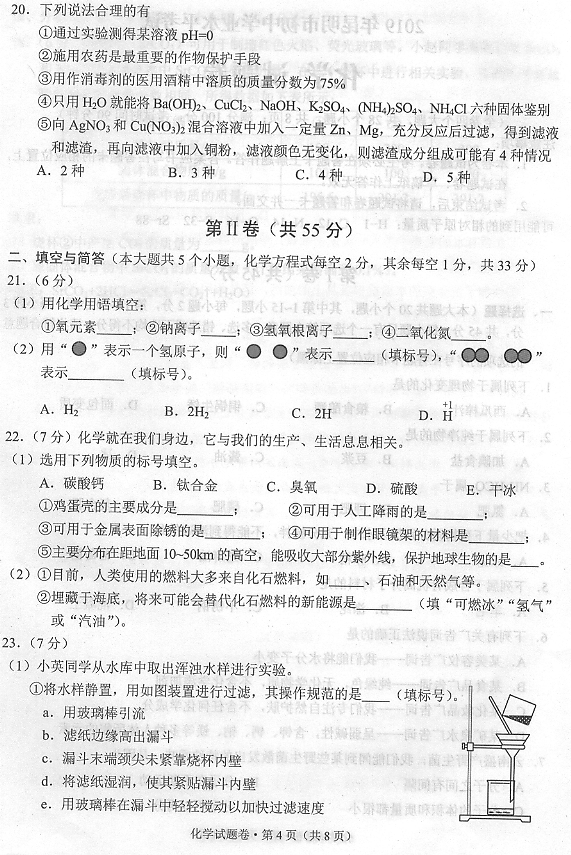 20．下列说法合理的有
①通过实验测得某溶液 pH=0
②施用农药是最重要的作物保护手段
③用作消毒剂的医用酒精中溶质的质量分数为75%
④只用 H₂O 就能将 Ba(OH)₂、CuCl₂、NaOH、K₂SO₄、(NH₄)₂SO₄、NH₄Cl 六种固体鉴别
⑤向 AgNO₃ 和 Cu(NO₃)₂ 混合溶液中加入一定量 Zn、Mg，充分反应后过滤，得到滤液
和滤渣，再向滤液中加入铜粉，滤液颜色无变化，则滤渣成分组成可能有 4 种情况
A．2 种 B．3 种 C．4 种 D．5 种
第Ⅱ卷（共 55 分）
二、填空与简答（本大题共 5 个小题，化学方程式每空 2 分，其余每空 1 分，共 33 分）
21．（6 分）
（1）用化学用语填空：
①氧元素____；②钠离子____；③氢氧根离子____；④二氧化氮____。
（2）用“ ”表示一个氢原子，则“ ”表示____（填标号），“ ”
表示____（填标号）。
A．H₂ B．2H₂ C．2H D．H⁺¹
22．（7 分）化学就在我们身边，它与我们的生产、生活息息相关。
（1）选用下列物质的标号填空。
A．碳酸钙 B．钛合金 C．臭氧 D．硫酸 E．干冰
①鸡蛋壳的主要成分是____； ②可用于人工降雨的是____；
③可用于金属表面除锈的是____； ④可用于制作眼镜架的材料是____；
⑤主要分布在距地面 10~50km 的高空，能吸收大部分紫外线，保护地球生物的是____。
（2）①目前，人类使用的燃料大多来自化石燃料，如____、石油和天然气等。
②埋藏于海底，将来可能会替代化石燃料的新能源是____（填“可燃冰”“氢气”
或“汽油”）。
23．（7 分）
（1）小英同学从水库中取出浑浊水样进行实验。
①将水样静置，用如图装置进行过滤，其操作规范的是____（填标号）。
a．用玻璃棒引流
b．滤纸边缘高出漏斗
c．漏斗末端颈尖未紧靠烧杯内壁
d．将滤纸湿润，使其紧贴漏斗内壁
e．用玻璃棒在漏斗中轻轻搅动以加快过滤速度
化学试题卷·第 4 页（共 8 页）